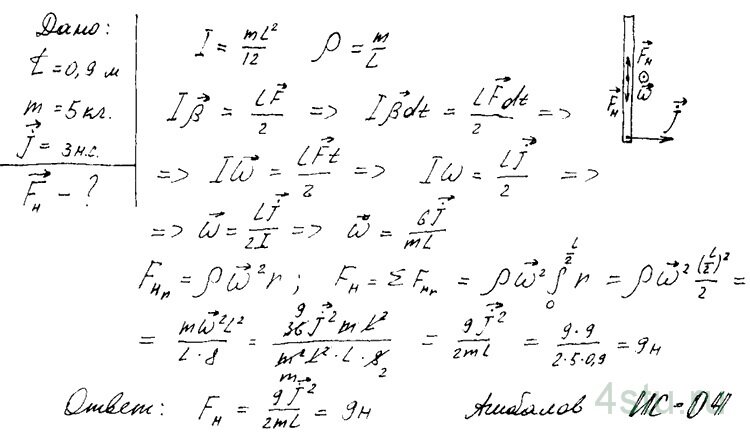 Дано:
L = 0,9 м
m = 5 кг.
J⃗ = 3 н.с.
F⃗н - ?
I = mL²/12    ρ = m/L
Iβ⃗ = LF⃗/2 => Iβ⃗dt = LF⃗dt/2 =>
=> Iω⃗ = LF⃗t/2 => Iω = LJ⃗/2 =>
=> ω⃗ = LJ⃗/2I => ω⃗ = 6J⃗/mL
Fнr = ρω⃗²r ; Fн = ΣFнr = ρω⃗² ∫₀^(L/2) r = ρω⃗² (L/2)²/2 =
= mω⃗²L²/L·8 = 9 36J⃗²mL²/m²L²·L·8 m 2 = 9J⃗²/2mL = 9·9/2·5·0,9 = 9н
Ответ: Fн = 9J⃗²/2mL = 9н    ИС-04
F⃗н
ω⃗
F⃗н
J⃗
4stu.ru